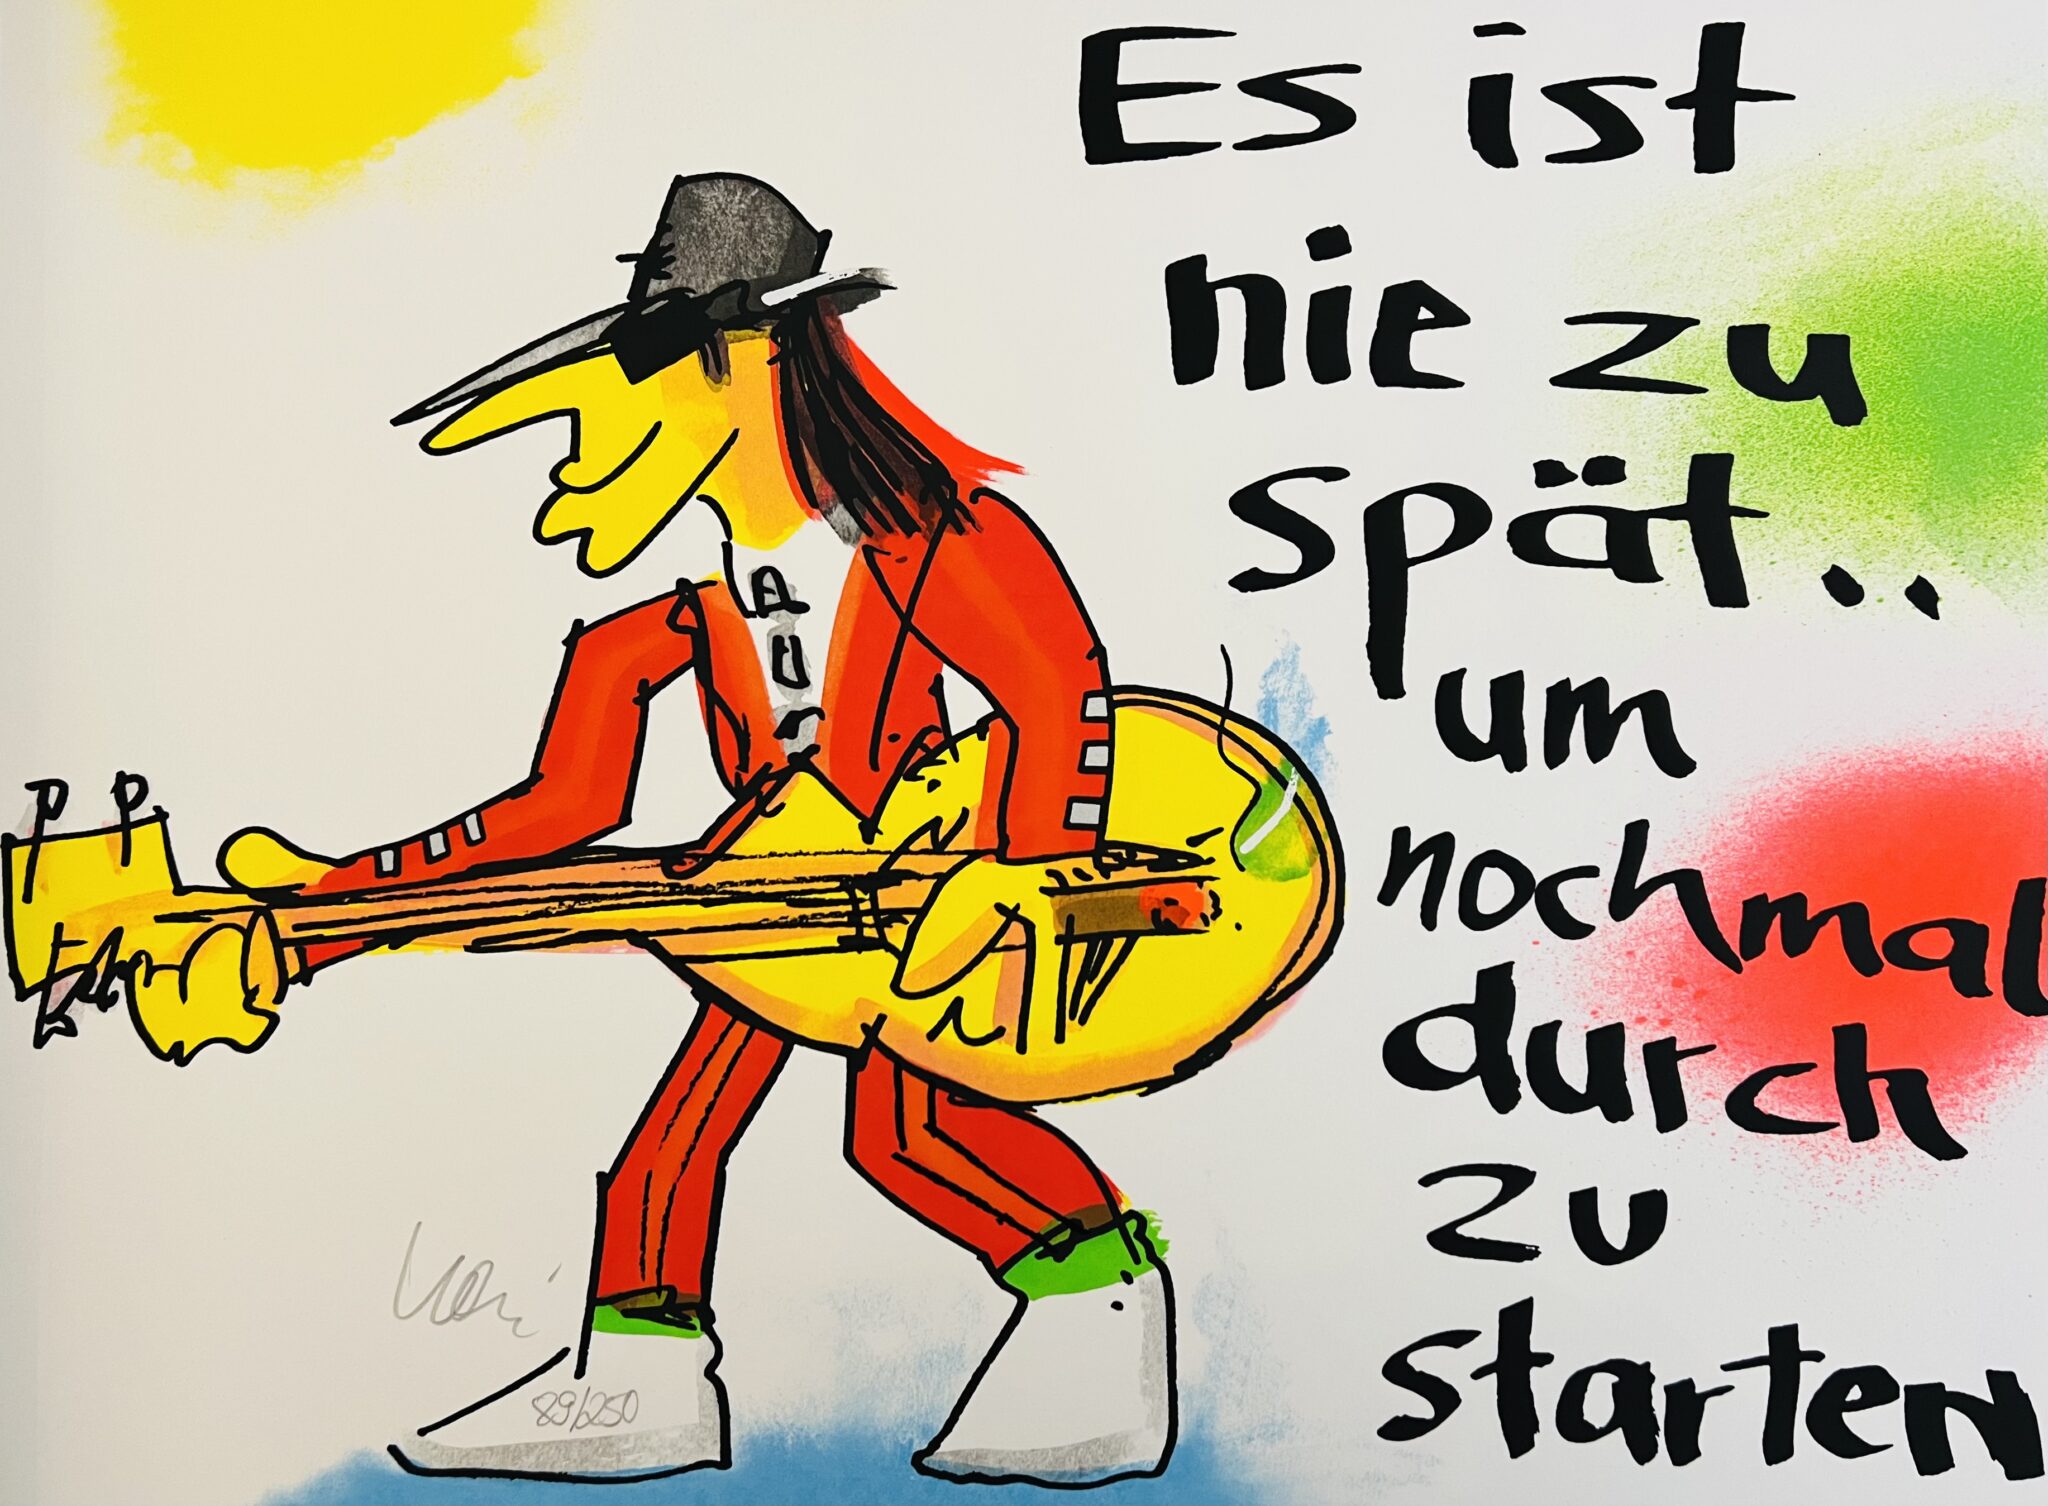 Es ist
nie zu
spät..
um
nochmal
durch
zu
starten
P P
89/250